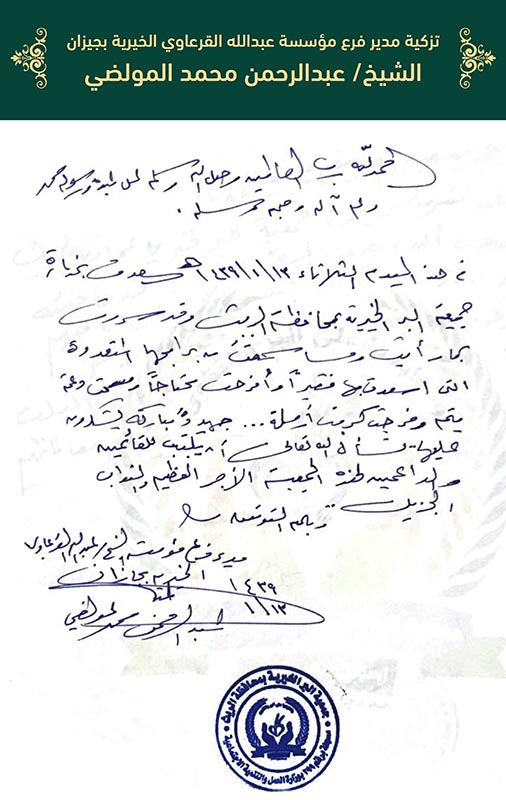 تزكية مدير فرع مؤسسة عبدالله القرعاوي الخيرية بجيزان
الشيخ/ عبدالرحمن محمد المولضي
الحمد لله رب العالمين وصلى الله وسلم على عبده ورسوله محمد
وعلى آله وصحبه وسلم.
في هذا اليوم الثلاثاء ١٤٣٩/١/١٣هـ سعدت بزيارة
جمعية البر الخيرية بمحافظة الريث وقد سررت
بما رأيت وما سمعت من برامجها المتعددة
التي أسعدت بها فقيراً وأفرحت محتاجاً ومسحت دمعة
يتيم وفرجت كربت أرملة... جهود مباركة يشكرون
عليها. نسأل الله تعالى أن يكتب للقائمين
والداعمين لهذه الجمعية الأجر العظيم والثواب
الجزيل..
وبالله التوفيق
مدير فرع مؤسسة الشيخ/ عبدالله القرعاوي
الخيرية بجازان
١٤٣٩
١/١٣
عبدالرحمن محمد المولضي
جمعية البر الخيرية بمحافظة الريث